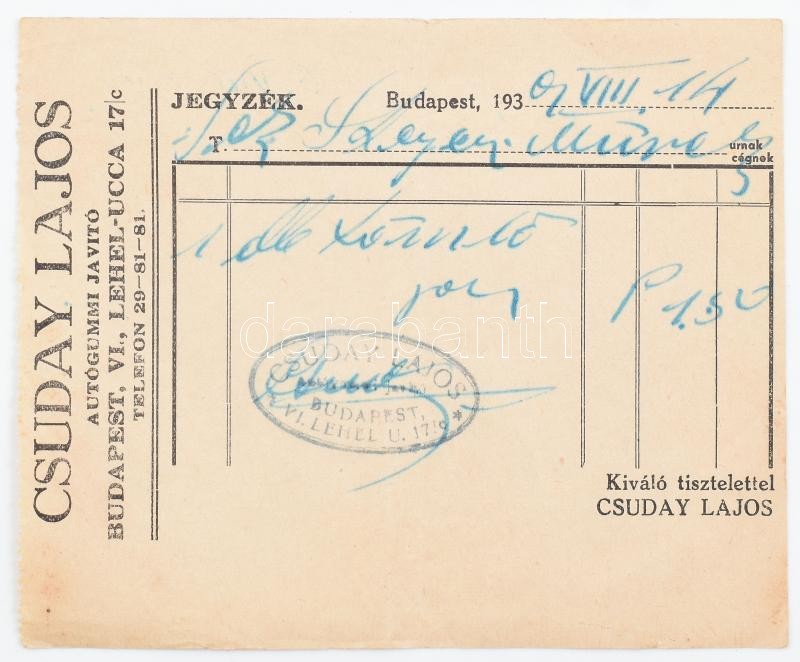 CSUDAY LAJOS
AUTÓGUMMI JAVITÓ
BUDAPEST, VI., LEHEL-UCCA 17/c
TELEFON 29-81-81.
JEGYZÉK. Budapest, 193 VIII. 14
T. urnak
cégnek
1 db
P 1.50
CSUDAY LAJOS
BUDAPEST,
VI. LEHEL U. 17/c
darabanth
Kiváló tisztelettel
CSUDAY LAJOS